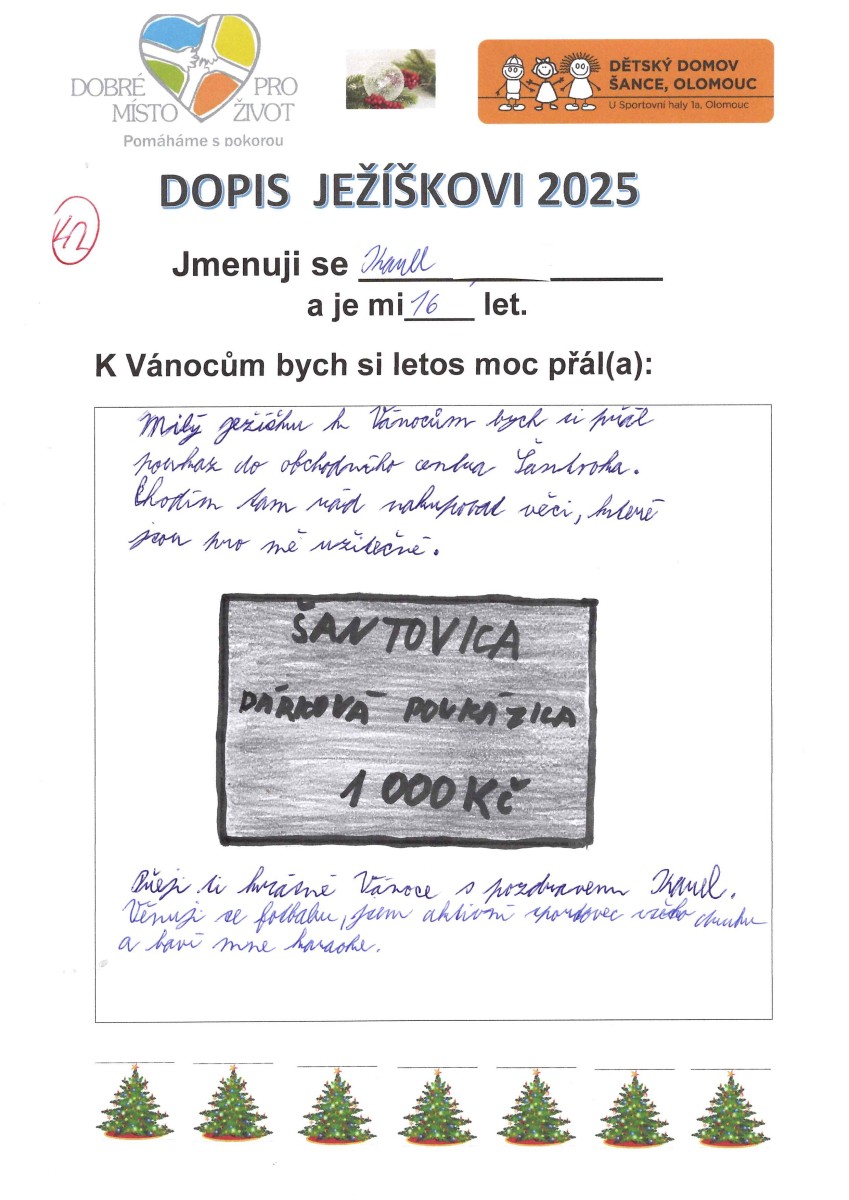 DOBRÉ PRO
MÍSTO ŽIVOT
Pomáháme s pokorou
DĚTSKÝ DOMOV
ŠANCE, OLOMOUC
U Sportovní haly 1a, Olomouc
DOPIS JEŽÍŠKOVI 2025
42
Jmenuji se Karel
a je mi 16 let.
K Vánocům bych si letos moc přál(a):
Milý ježíšku k Vánocům bych si přál
poukaz do obchodního centra Šantovka.
Chodím tam rád nakupovat věci, které
jsou pro mě užitečné.
ŠANTOVKA
DÁRKOVÁ POUKÁZKA
1 000 Kč
Přeji ti krásné Vánoce s pozdravem Karel.
Věnuji se fotbalu, jsem aktivní sportovec všeho druhu
a baví mne karaoke.